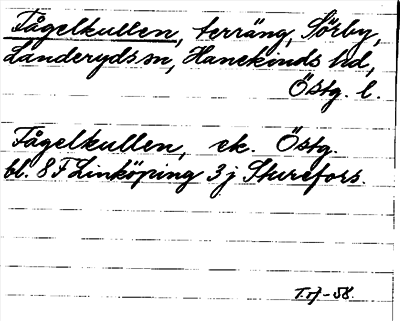 Fågelkullen, terräng, Sörby,
Landeryds sn, Hanekinds hd,
Östg. l.
Fågelkullen, ek. Östg.
bl. 8 F Linköping 3 j Sturefors.